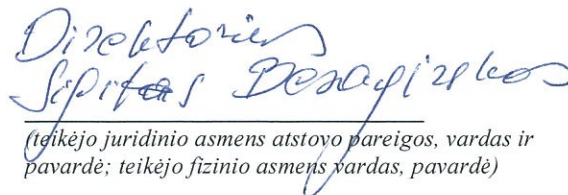 Direktorius
(teikėjo juridinio asmens atstovo pareigos, vardas ir
pavardė; teikėjo fizinio asmens vardas, pavardė)